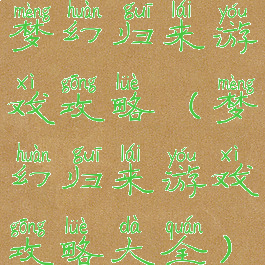 mèng huàn guī lái yóu
梦幻归来游
xì gōng lüè mèng
戏攻略（梦
huàn guī lái yóu xì
幻归来游戏
gōng lüè dà quán
攻略大全）